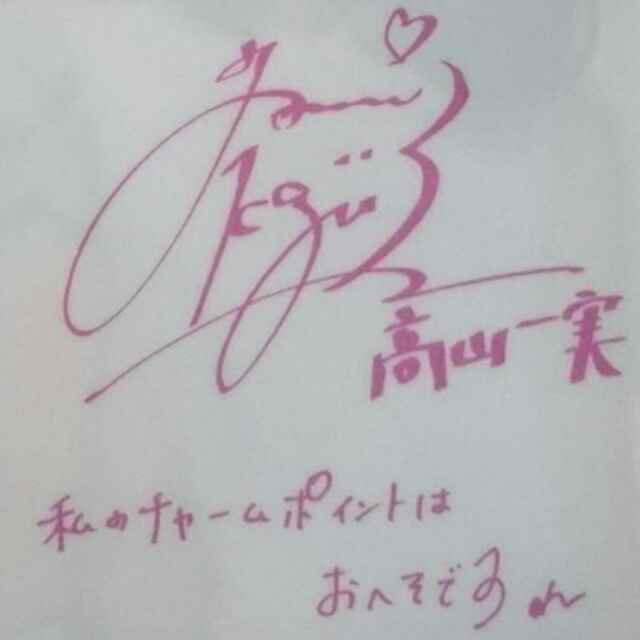 高山一実
私のチャームポイントは
おへそです